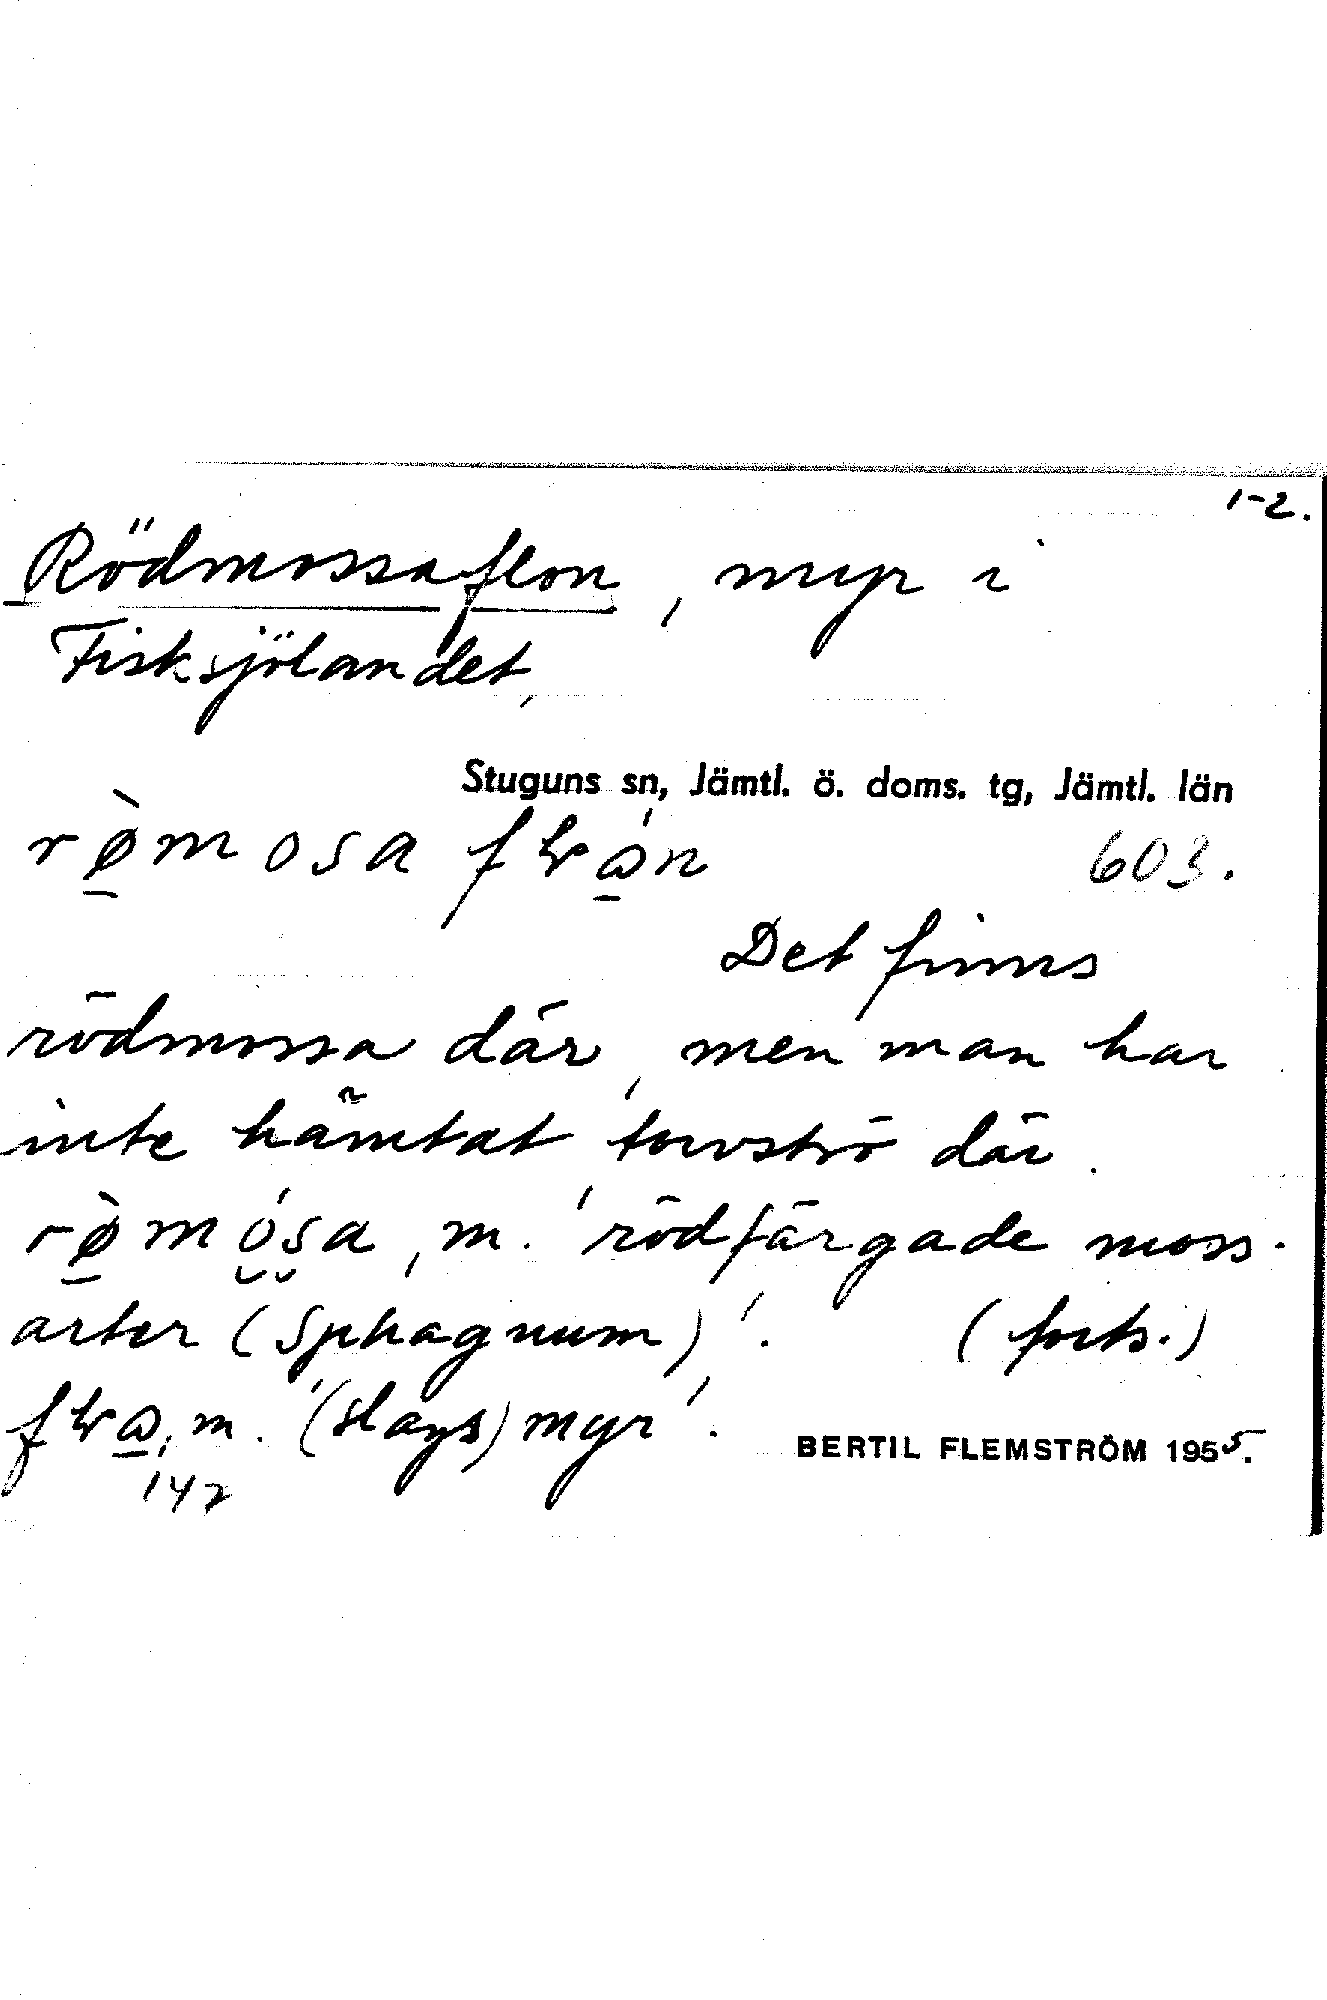 1-2.
Rödmossaflon, myr i
Fisksjölandet,
Stuguns sn, Jämtl. ö. doms. tg, Jämtl. län
rø̀mosa
603.
Det finns
rödmossa där, men man har
inte hämtat torvströ där.
rø̀mósa, m. 'rödfärgade moss-
arter (Sphagnum)'. (forts.)
m. '(slags) myr'.
BERTIL FLEMSTRÖM 1955.
142